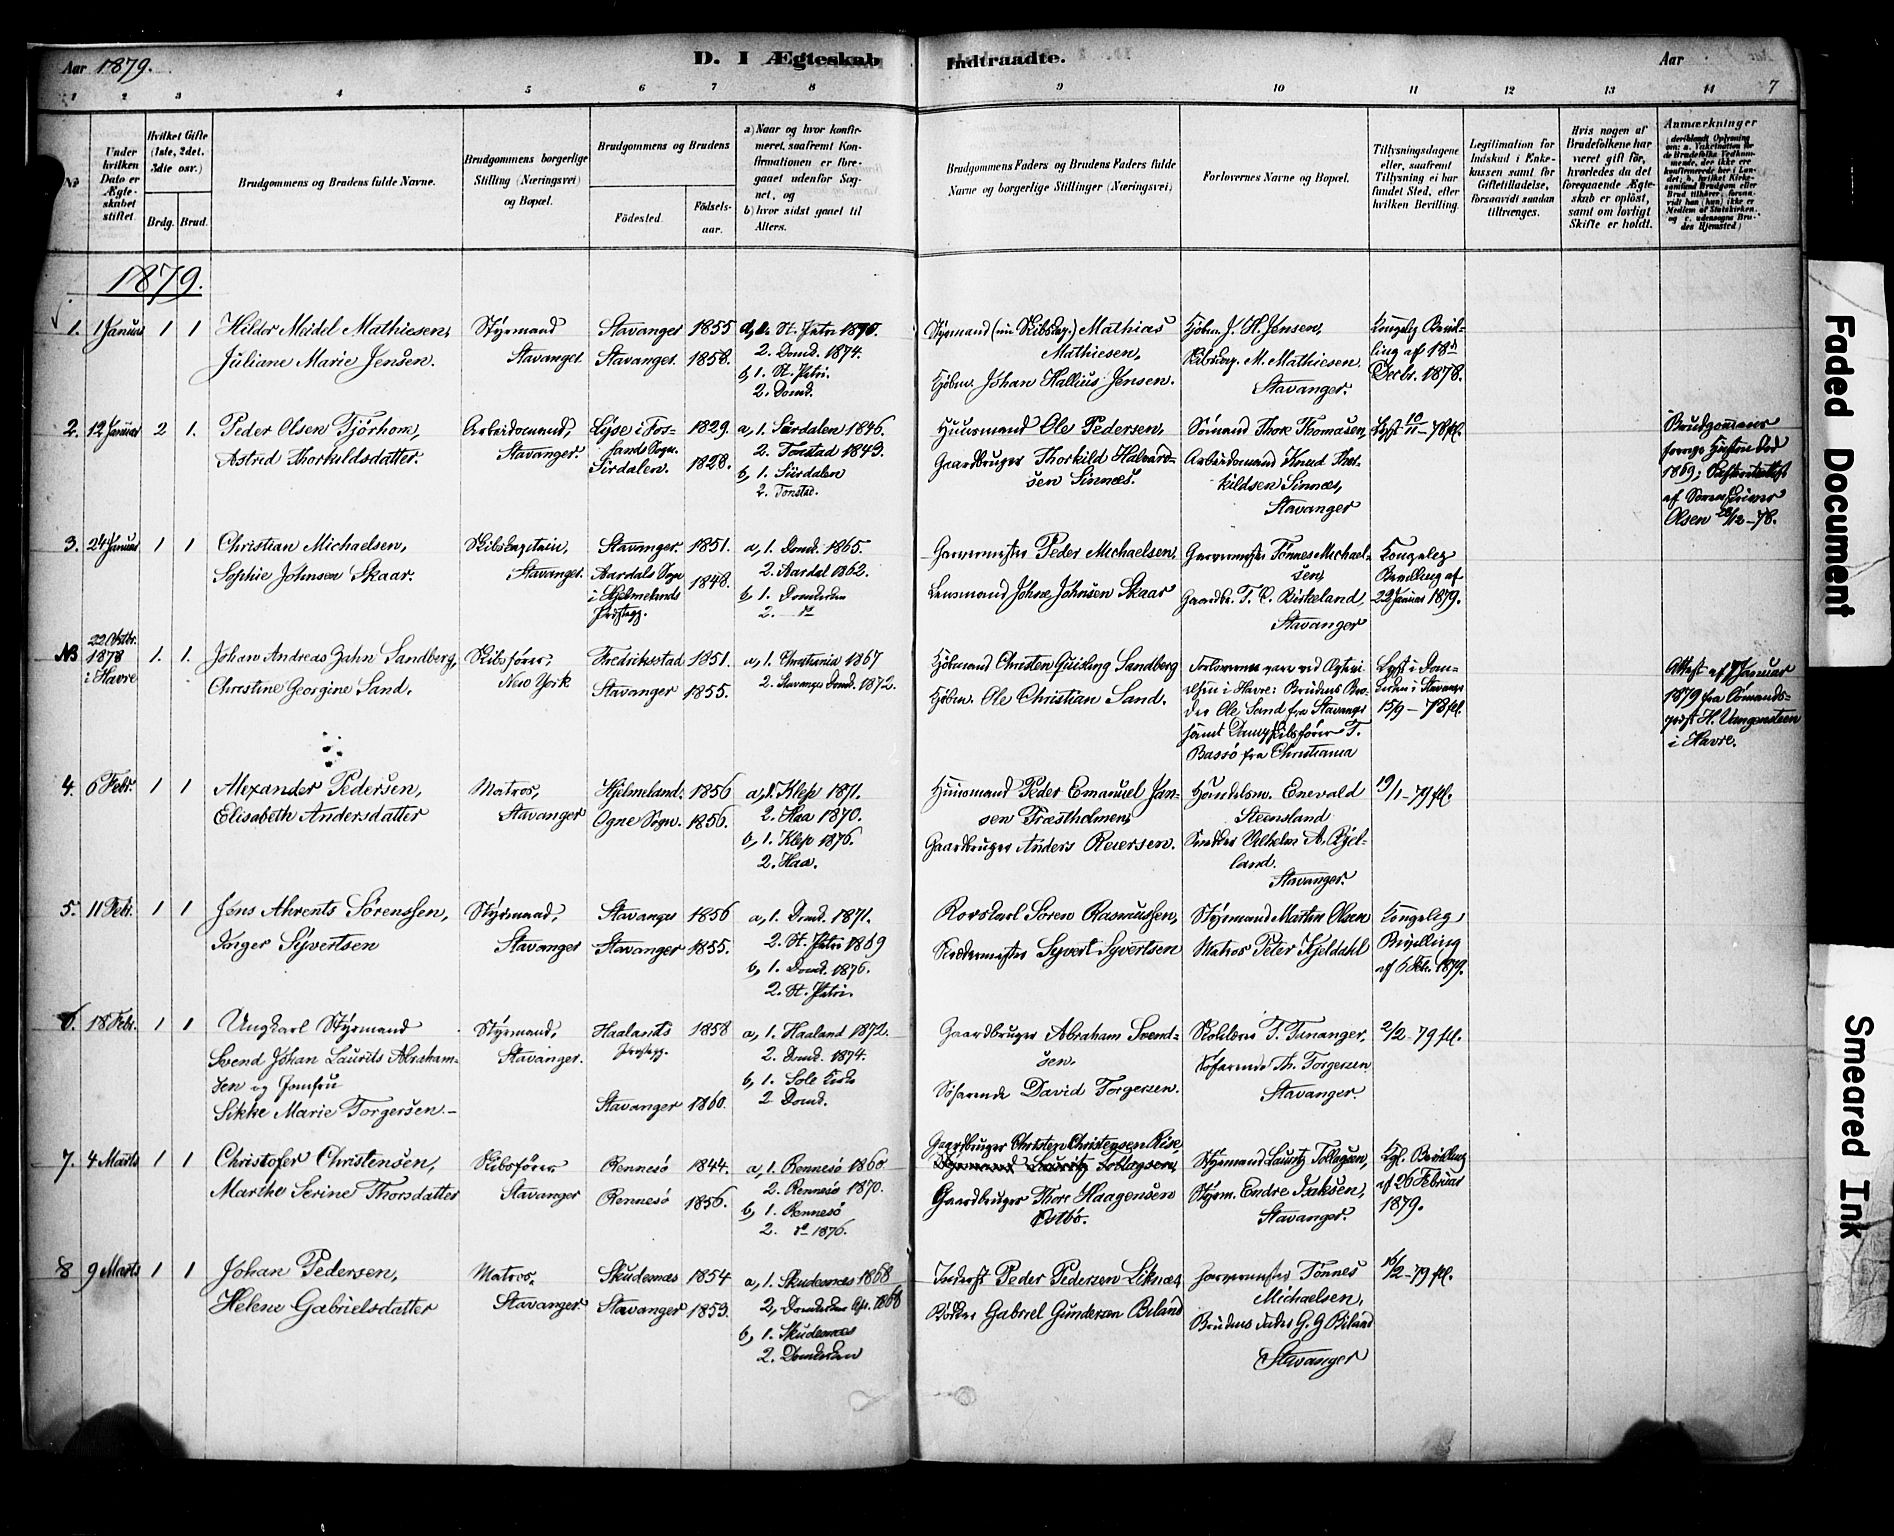 Aar 1879.
D. I Ægteskab Indtraadte.
Aar
7
1 2 3 4 5 6 7 8 9 10 11 12 13 14
No
Under hvilken Dato er Ægteskabet stiftet.
Hvilket Gifte (1ste, 2det, 3die osv.)
Brdg. Brud.
Brudgommens og Brudens fulde Navne.
Brudgommens borgerlige Stilling (Næringsvei) og Bopæl.
Brudgommens og Brudens
Födested.
Födselsaar.
a) Naar og hvor konfirmeret, saafremt Konfirmationen er foregaaet udenfor Sognet, og
b) hvor sidst gaaet til Alters.
Brudgommens Faders og Brudens Faders fulde Navne og borgerlige Stillinger (Næringsvei)
Forlovernes Navne og Bopæl.
Tillysningsdagene eller, saafremt Tillysning ei har fundet Sted, efter hvilken Bevilling.
Legitimation for Indskud i Enkekassen samt for Giftetilladelse, forsaavidt saadan tiltrænges.
Hvis nogen af Brudefolkene har været gift för, hvorledes da det foregaaende Ægteskab er oplöst, samt om lovligt Skifte er holdt.
Anmærkninger
1879.
1. 1 Januar 1 1 Hildor Meidel Mathiesen,
Juliane Marie Jensen.
Styrmand
Stavanger.
Stavanger 1855
Stavanger. 1858.
a, 1. St. Petri 1870.
2. Domk. 1874.
b, 1. St. Petri.
2. Domk.
Styrmand (nu Skibskap.) Mathias
Mathiesen,
Kjöbm. Johan Hallius Jensen.
Kjöbm. J. H. Jensen,
Skibskap. M. Mathiesen
Stavanger.
Kongelig Bevil-
ling af 18d
Decbr. 1878.
2. 12 Januar 2 1. Peder Olsen Fjörhom,
Astrid Thorkildsdatter.
Arbeidsmand,
Stavanger.
Lyse i Fos-
sands Sogn. 1829.
Sirdalen. 1828.
a, 1. Sirdalen 1846
2. Tonstad 1843.
b, 1. Siirdalen
2. Tonstad.
Huusmand Ole Pedersen,
Gaardbruger Thorkild Halvard-
sen Sinnes.
Sömand Thore Thomasen,
Arbeidsmand Knud Thor-
kildsen Sinnes,
Stavanger
Lyst 10/11-78 fl.
Brudgommens
forrige Hustru död
1869; Skifteattest
af
Olsen 28/12-78.
3. 24 Januar 1 1 Christian Michaelsen,
Sophie Johnsen Skaar.
Skibskaptein,
Stavanger.
Stavanger. 1851.
Aardals Sogn
i Hjelmelands 1848.
Prstgj.
a, 1. Domk. 1865.
2. Aardal 1862.
b, 1. Domkirken
2. do
Garvermester Peder Michaelsen.
Lensmand Johne Johnsen Skaar
Garvermester Tönnes Michael-
sen,
Gaardbr. T. C. Birkeland,
Stavanger
Kongelig
Bevilling af
22 Januar 1879.
NB 22 Octbr.
1878
i Havre 1. 1. Johan Andreas Zahn Sandberg,
Christine Georgine Sand.
Skibsförer,
New York
Fredriksstad 1851.
Stavanger 1855.
a, 1. Christiania 1867
2. Stavanger Domk. 1872.
Kjöbmand Christen Quisling Sandberg
Kjöbm. Ole Christian Sand.
Forloverne vare ved Egtevi-
elsen i Havre: Brudens Bro-
der Ole Sand fra Stavanger
samt Dampskibsförer T.
Bassö fra Christiania
Lyst i Dom-
kirken i Stavanger
15/9-78 fl.
Attest af 7 Januar
1879 fra Sömands-
prest H. Vangensteen
i Havre.
4. 6 Febr. 1 1 Alexander Pedersen,
Elisabeth Andersdatter
Matros,
Stavanger
Hjelmeland. 1856
Ogne Sogn. 1856.
a, 1. Klep 1871.
2. Haa 1870.
b, 1. Klep 1876.
2. Haa.
Huusmand Peder Emanuel Jan-
sen Træstholmen,
Gaardbruger Anders Reiersen.
Handelsm. Enevald
Steensland
Snedker Vilhelm A. Bjel-
land.
Stavanger.
19/1-79 fl.
5. 11 Febr. 1 1 Jens Ahrents Sörenssen,
Inger Syvertsen
Styrmand,
Stavanger
Stavanger 1856
Stavanger 1855.
a, 1. Domk. 1871.
2. St. Petri 1869
b, 1. Domk. 1876.
2. St. Petri.
Rorskarl Sören Rasmussen,
Skrædermester Syvert Syvertsen
Styrmand Martin Olsen
Matros Peter Kjeldahl
Kongelig
Bevilling
af 6 Feb. 1879.
6. 18 Febr. 1 1 Ungkarl Styrmand
Svend Johan Laurits Abraham-
sen og Jomfru
Sikke Marie Torgersen.
Styrmand,
Stavanger.
Haalands 1858
Prstgj.
Stavanger 1860.
a, 1. Haaland 1872.
2. Domk. 1874.
b, 1. Sole Kirke
2. Domk.
Gaardbruger Abraham Svend-
sen.
Söfarende David Torgersen.
Skolelærer T. Tananger,
Söfarende Th. Torgersen
Stavanger.
2/2-79 fl.
7. 4 Marts 1 1 Christofer Christensen,
Marthe Serine Thorsdatter
Skibsförer
Stavanger
Rennesö 1844.
Rennesö 1856.
a, 1. Rennesö 1860
2. Rennesö 1870.
b, 1. Rennesö
2. do 1876.
Gaardbruger Christen Christensen Rise,
Styrmand Lauritz Tollagsen,
Gaardbruger Thore Haagensen
Östbö.
Styrmand Lauritz Tollagsen,
Styrm. Endre Isaksen,
Stavanger.
Kgl. Bevilling
af 26 Februar
1879.
8 9 Marts 1 1 Johan Pedersen,
Helene Gabrielsdatter
Matros,
Stavanger
Skudesnæs 1854
Stavanger 1853.
a, 1. Skudesnæs 1868
2, Domkirken 1868
b, 1. Skudesnæs
2. Domkirken
Inderst Peder Pedersen Liknæs
Bödker Gabriel Gundersen Biland
Garvermester Tönnes
Michaelsen,
Brudens Fader G. G. Biland
Stavanger
16/2-79 fl.
Faded Document
Smeared Ink